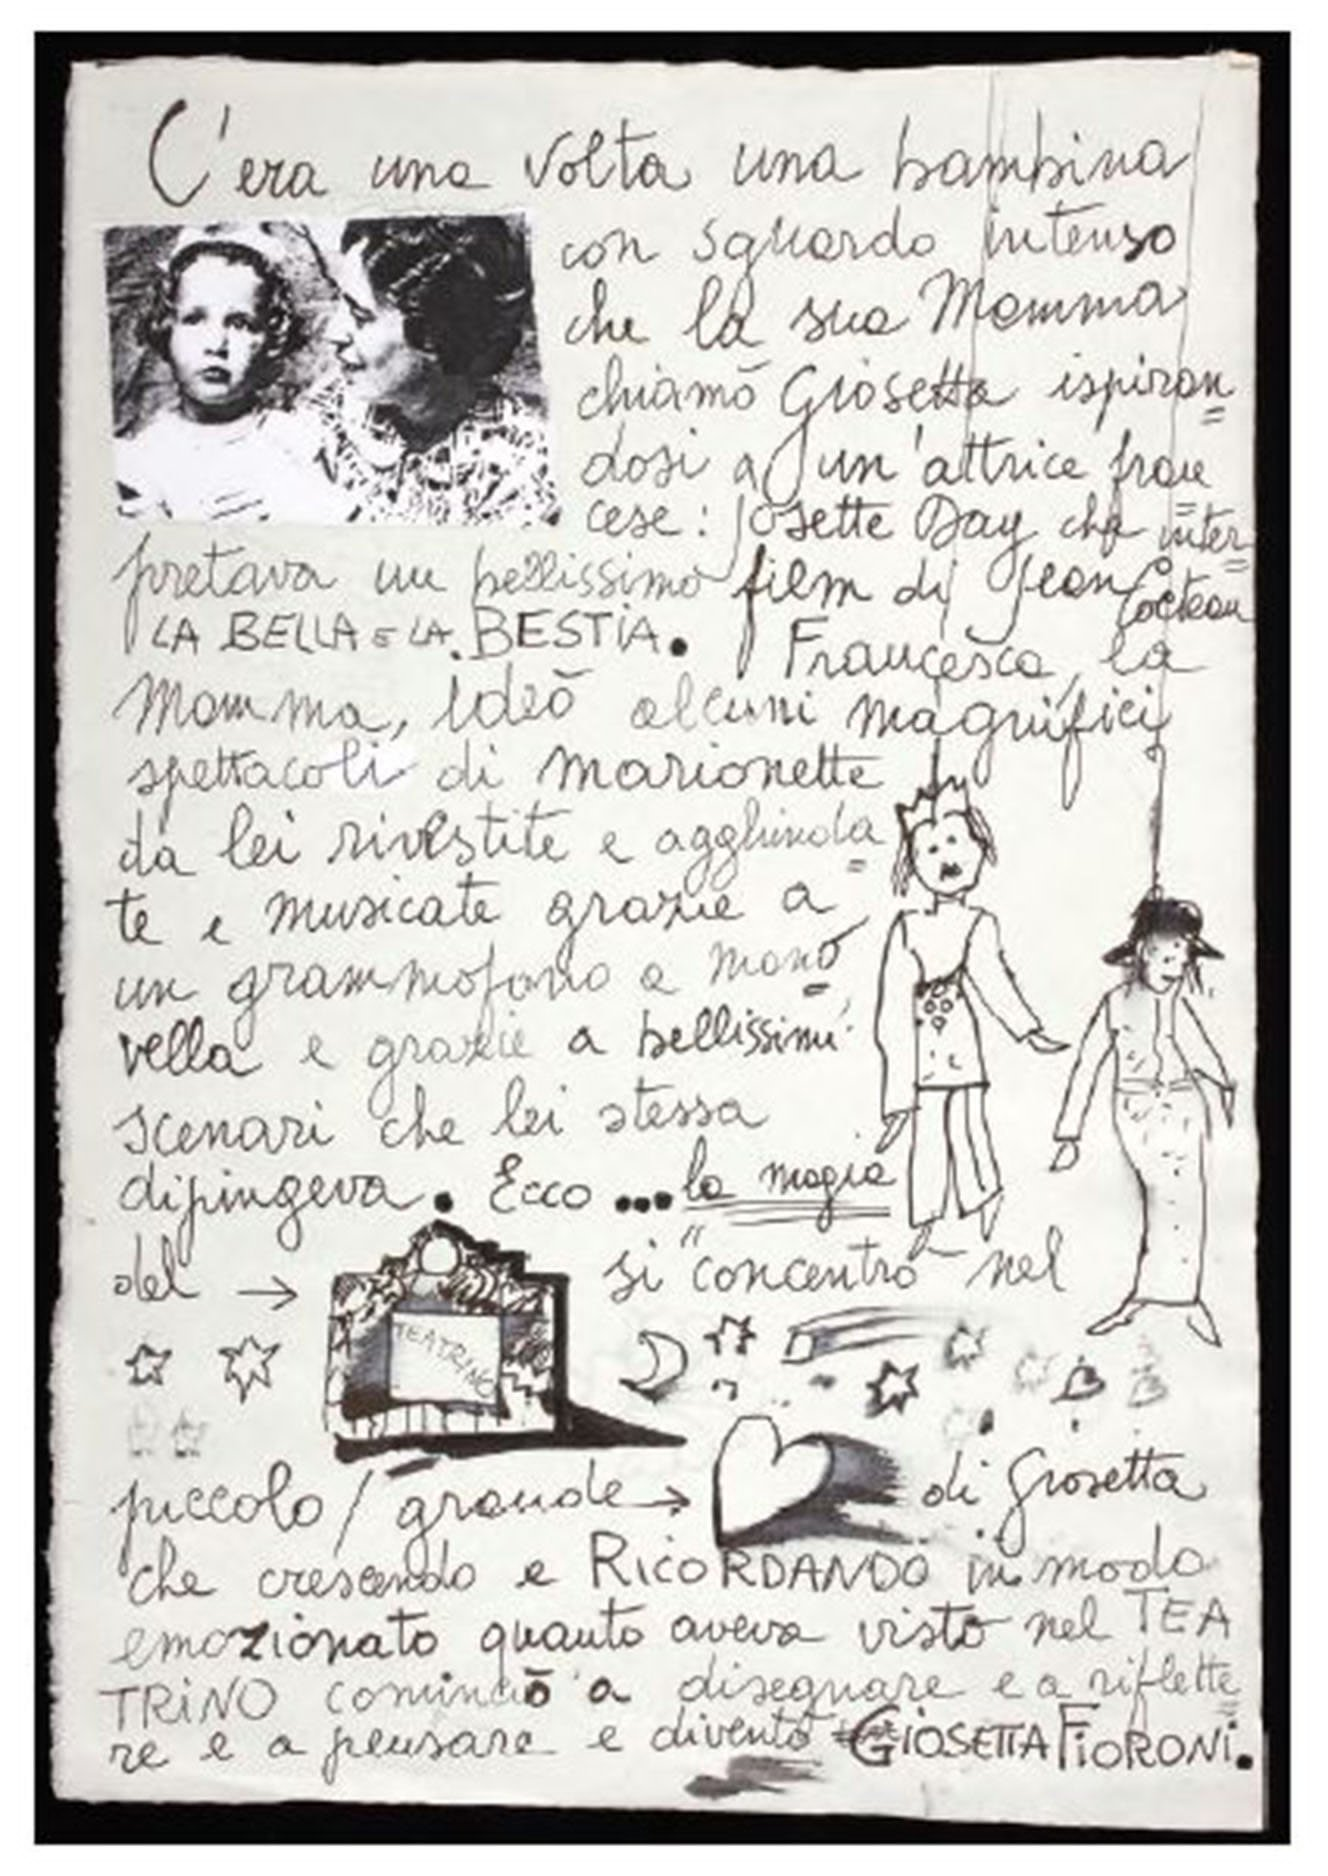 C'era una volta una bambina
con sguardo intenso
che la sua Mamma
chiamò Giosetta ispiran=
dosi a un'attrice fran=
cese: Josette Day che inter=
pretava un bellissimo film di Jean Cocteau
LA BELLA E LA BESTIA. Francesca, la
Mamma, ideò alcuni magnifici
spettacoli di marionette
da lei rivestite e agghinda=
te e musicate grazie a
un grammofono a mano=
vella e grazie a bellissimi
scenari che lei stessa
dipingeva. Ecco ... la magia
del → si "concentrò" nel
TEATRINO
piccolo / grande → di Giosetta
che crescendo e RICORDANDO in modo
emozionato quanto aveva visto nel TEA
TRINO cominciò a disegnare e a riflette=
re e a pensare e diventò GIOSETTA FIORONI.